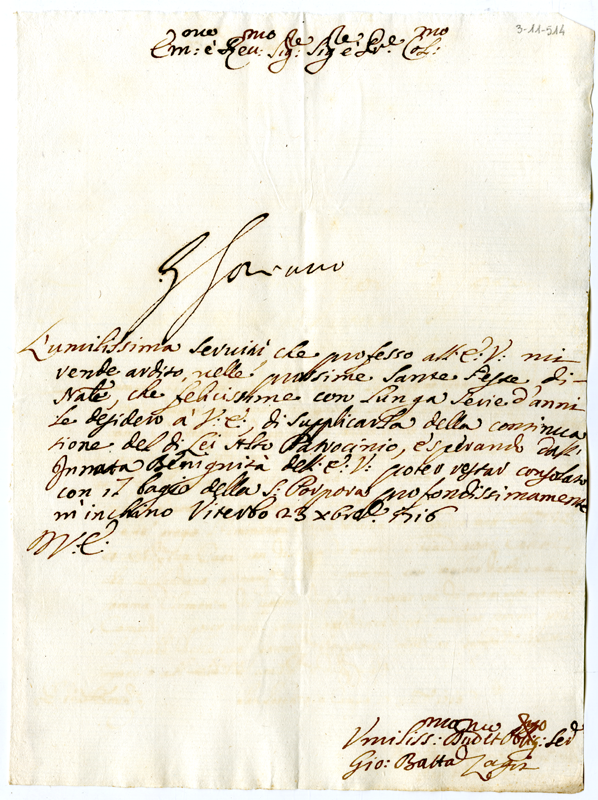 3-11-514
Em:mo e Reu:mo Sig:re Sig:re e Pr:e Col:mo
L'umilissima seruitù che professo all'E: V: mi
rende ardito, nelle prossime Sante Feste di
Nat.e, che felicissime con lunga serie d'anni
le desidero à V: E:, di supplicarla della continua
tione del di Lei Alto Patrocinio, e sperando dall'
Innata Benignità dell'E: V: poter restar consolato
con il bagio della S: Porpora profondissimamente
m'inchino Viterbo 23 xbre 1716
D V: E:
Vmiliss:mo
Gio: Batta